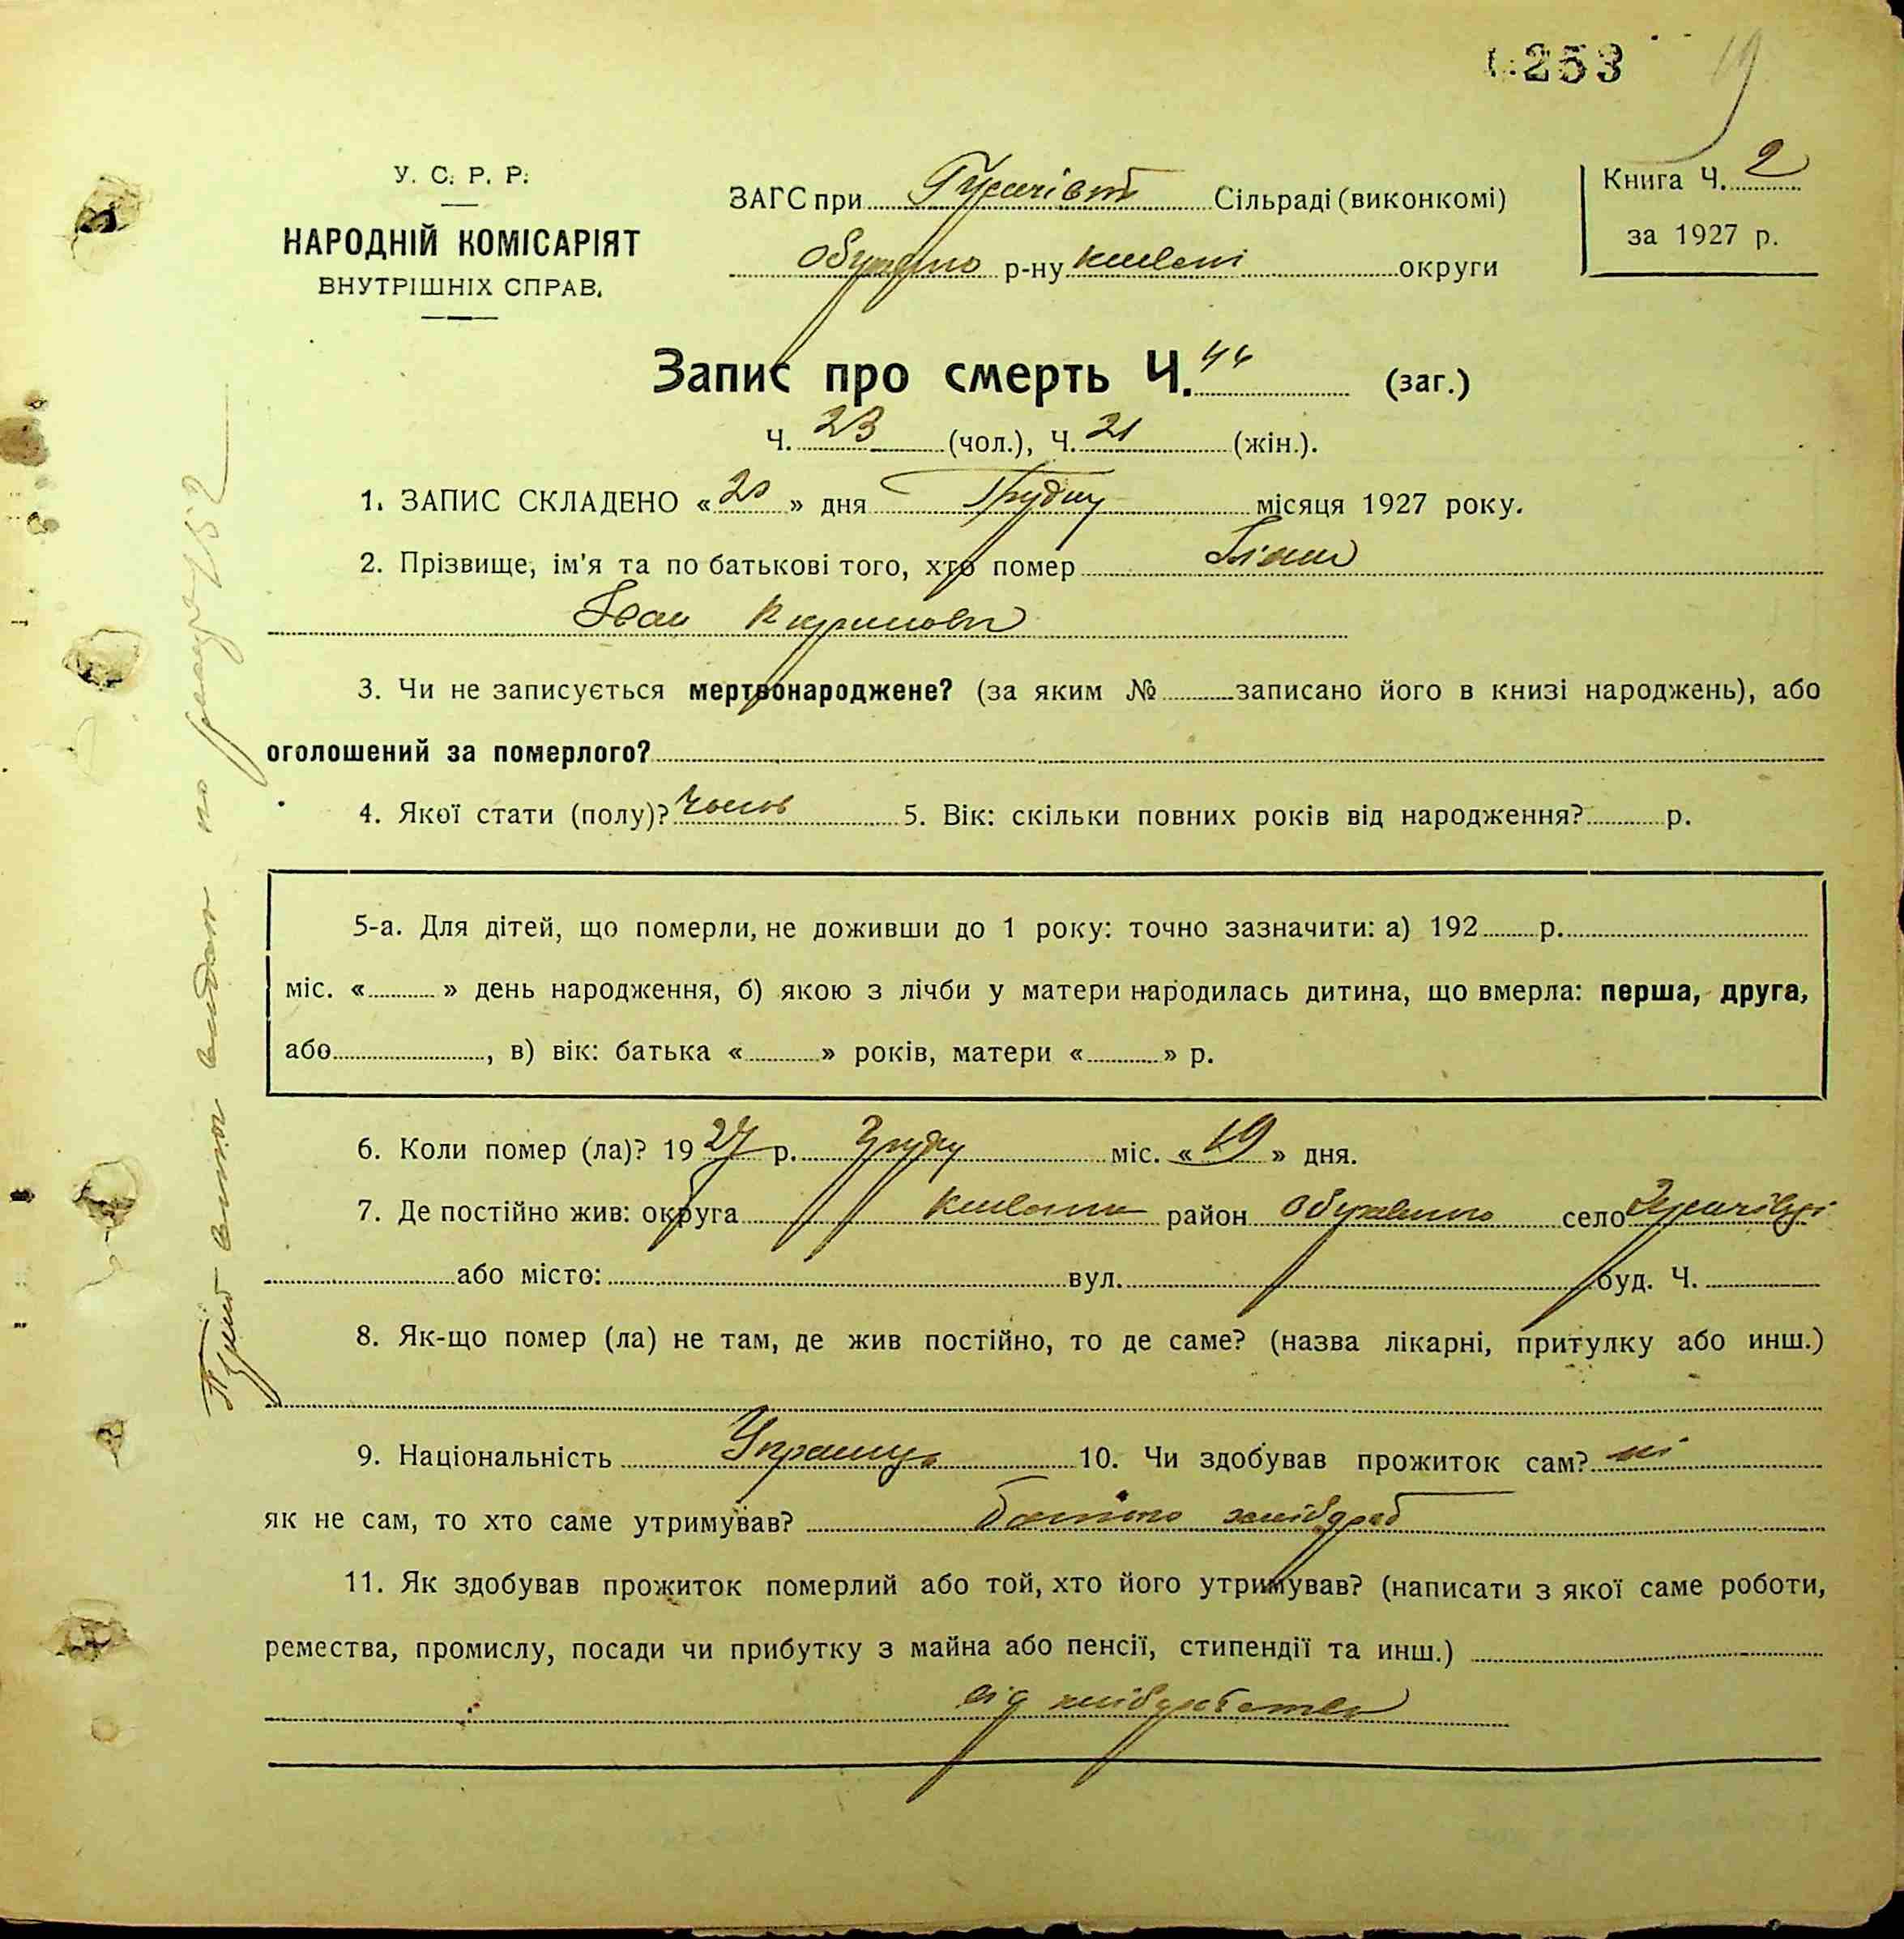 253 19
У. С. Р. Р.
НАРОДНІЙ КОМІСАРІЯТ
ВНУТРІШНІХ СПРАВ.
ЗАГС при Сільраді (виконкомі)
р-ну округи
Книга Ч. 2
за 1927 р.
Запис про смерть Ч. 44 (заг.)
Ч. 23 (чол.), Ч. 21 (жін.).
1. ЗАПИС СКЛАДЕНО «20» дня Грудня місяця 1927 року.
2. Прізвище, ім'я та по батькові того, хто помер
Іван
3. Чи не записується мертвонароджене? (за яким № записано його в книзі народжень), або
оголошений за померлого?
4. Якої стати (полу)? 5. Вік: скільки повних років від народження? р.
5-а. Для дітей, що померли, не доживши до 1 року: точно зазначити: а) 192 р.
міс. « » день народження, б) якою з лічби у матери народилась дитина, що вмерла: перша, друга,
або , в) вік: батька « » років, матери « » р.
6. Коли помер (ла)? 1927 р. міс. «19» дня.
7. Де постійно жив: округа район село
або місто: вул. буд. Ч.
8. Як-що помер (ла) не там, де жив постійно, то де саме? (назва лікарні, притулку або инш.)
9. Національність Українець 10. Чи здобував прожиток сам? ні
як не сам, то хто саме утримував? Батько хлібороб
11. Як здобував прожиток померлий або той, хто його утримував? (написати з якої саме роботи,
ремества, промислу, посади чи прибутку з майна або пенсії, стипендії та инш.)
від хліборобства